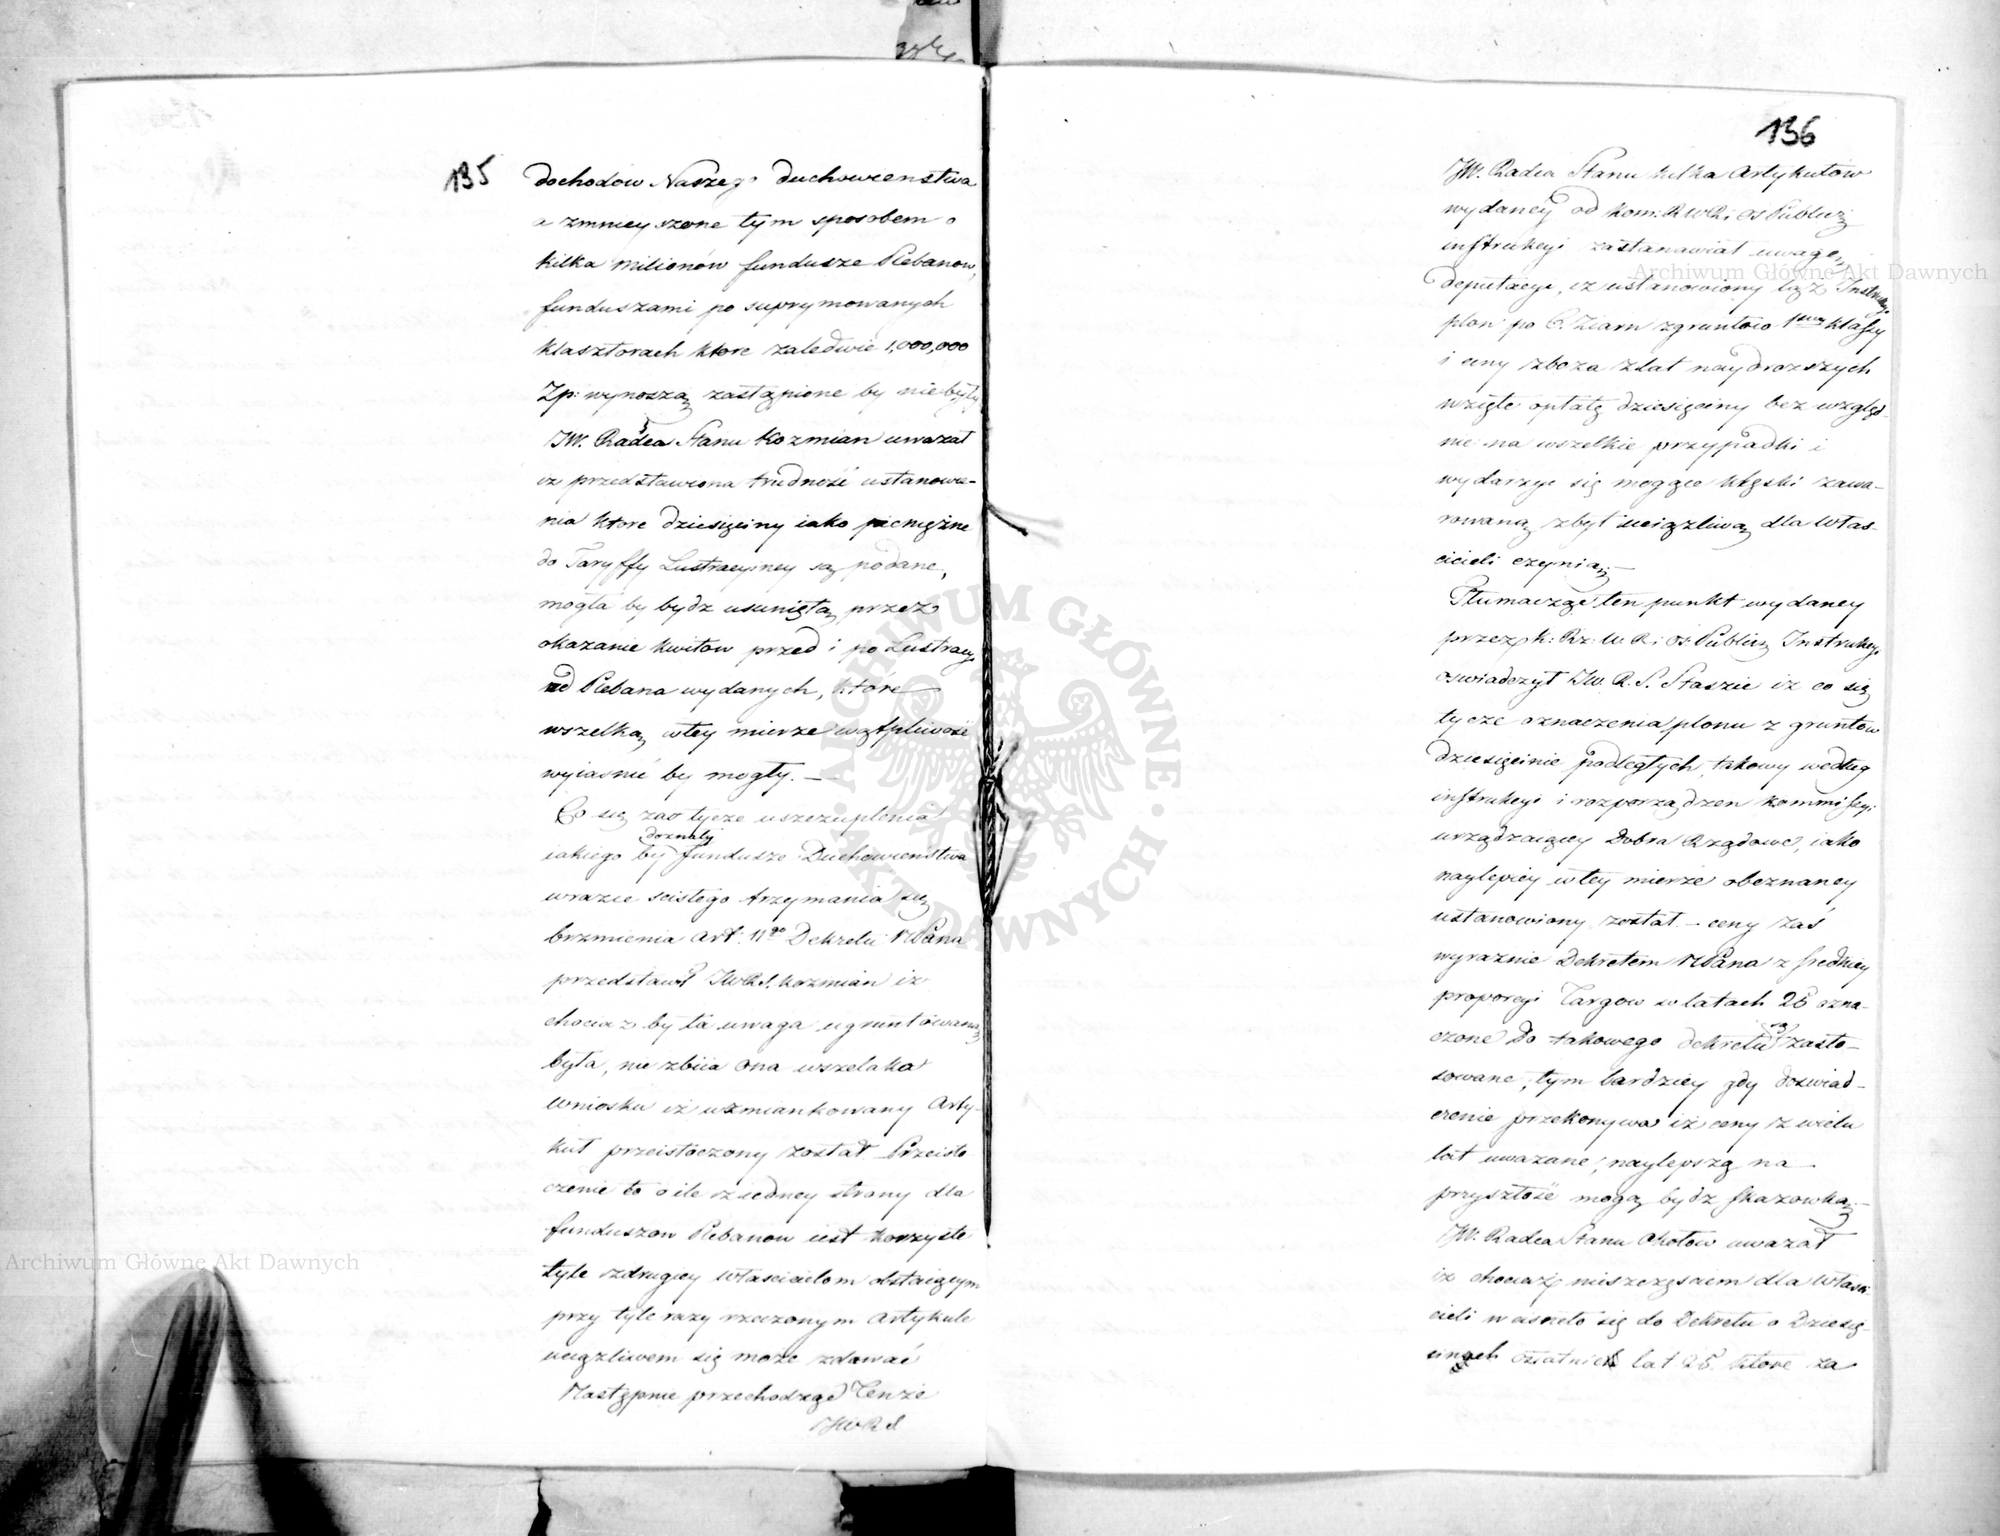 135
dochodow Naszego duchowienstwa
a zmnieyszone tym sposobem o
kilka milionów fundusze Plebanow,
funduszami po suprymowanych
klasztorach ktore zaledwie 1,000,000
Zp: wynoszą zastąpione by niebyły
JW. Radca Stanu Kozmian uwazał
iz przedstawiona trudność ustanowie-
nia ktore dziesięciny iako pieniężne
do Taryffy Lustracyiney są podane,
mogła by bydz usuniętą przez
okazanie kwitow przed i po Lustracyi
od Plebana wydanych, które
wszelką wtey mierze wątpliwość
wyiasnić by mogły. —
Co się zas tycze uszczuplenia
doznały
iakiego by fundusze Duchowieństwa
wrazie scisłego trzymania się
brzmienia Art: 11go Dekretu NPana
przedstawił JWRS. Kozmian iz
chociaz by ta uwaga ugruntowaną
była, nie zbiia ona wszelako
wniosku iż wzmiankowany Arty-
kuł przeistoczony został Przeisto
czenie to o ile z iedney strony dla
funduszow Plebanow iest korzystne
tyle z drugiey włascicielom obstaiącym
przy tyle razy rzeczonym Artykule
uciązliwem się może zdawać
Następnie przechodząc Tenże
JWRS
136
JW. Radca Stanu kilka Artykułow
wydaney od Kom: R W R i Os Publicz
instrukcyi zastanawiał uwagę
deputacyi, iz ustanowiony tąż Instrukcyi
plon po 6. Ziarn z gruntow 1szey klassy
i ceny zboza z lat naydrozszych
wzięte opłatę dziesięciny bez względ-
nie na wszelkie przypadki i
wydarzyc się mogące klęski zawa-
rowaną zbyt uciązliwą dla Włas-
cicieli czynią. —
Tłumacząc ten punkt wydaney
przez K: Rz: W. R i Os: Publicz Instrukcyi
oswiadczył JW. R. S. Staszic iz co się
tycze oznaczenia plonu z gruntow
dziesięcinie podległych, takowy według
instrukcyi i rozporządzen Kommissyi
urządzaiącey Dobra Rządowe, iako
naylepiey wtey mierze obeznaney
ustanowiony został — ceny zaś
wyraznie Dekretem NPana z sredniey
proporcyi Targow w latach 25 ozna-
są
czone do takowego dekretu zasto-
sowane, tym bardziey gdy doswiad-
czenie przekonywa iż ceny z wielu
lat uwazane, naylepszą na
przyszłość mogą bydz skazowką. —
JW. Radca Stanu Ochotow uwazał
iz chociaż nieszczęsciem dla Własci-
cieli wcisneło się do Dekretu o Dziesię-
cinach ostatnich lat 25. ktore za
Archiwum Główne Akt Dawnych
Archiwum Główne Akt Dawnych
ARCHIWUM GŁÓWNE · AKT DAWNYCH ·